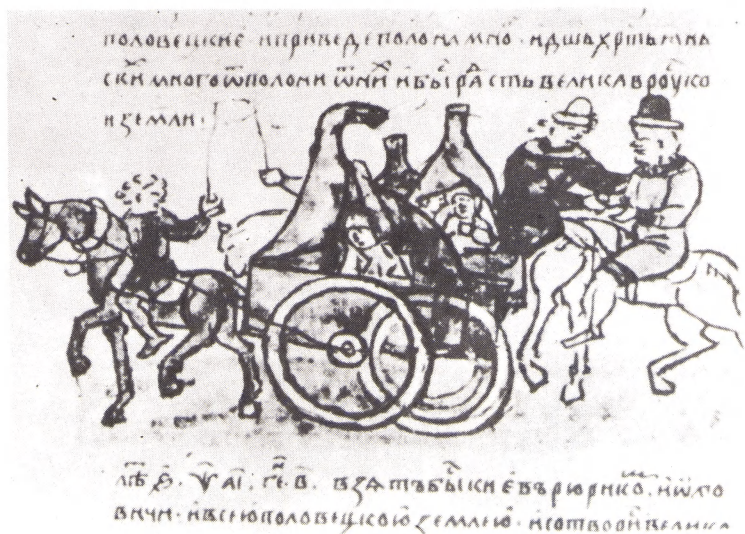 половецские · и приведе полона мно · и дш҃ь хр҃тьꙗнь
скиⷯ много ѿполони ѿ ниⷯ и быⷭ҇ раⷣсть велика в роуско
и земли ·
лѣⷮ ҂ѕ҃ · ѱ҃ аі҃ · ген҃ · в҃ · взѧтъ быⷭ҇ киевъ рюрикоⷨ · и ѡлго
вичи · и всею половецкою землею · и сотвори велика